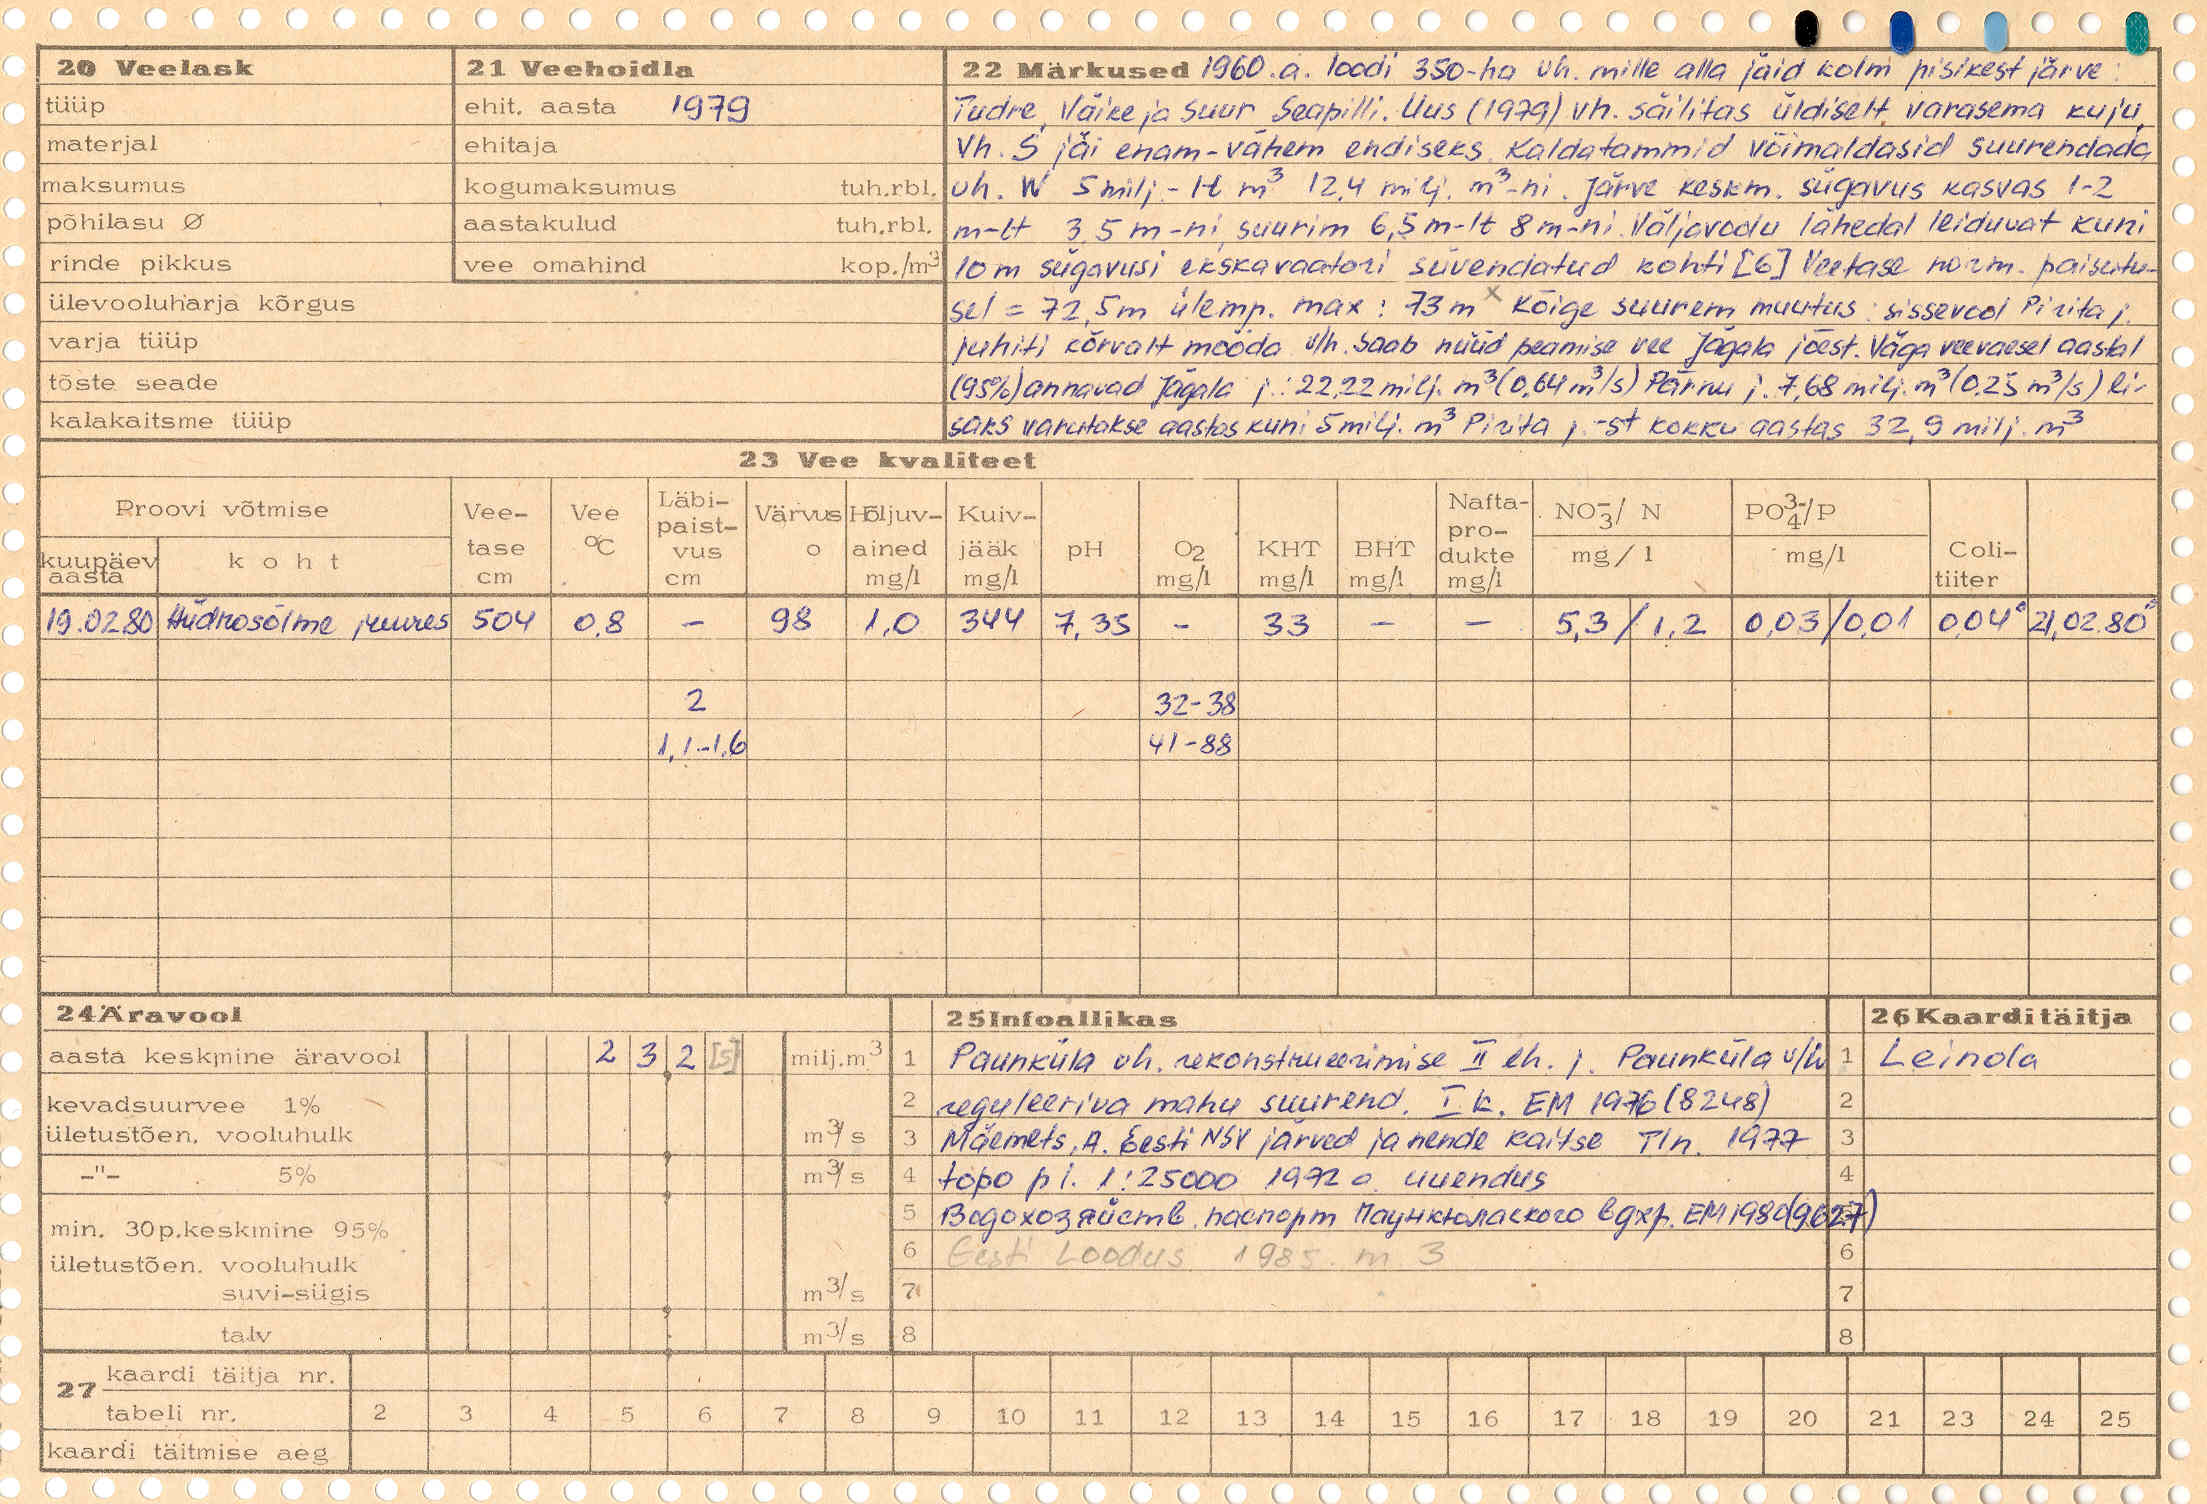 20 Veelask
tüüp
materjal
maksumus
põhilasu Ø
rinde pikkus
ülevooluharja kõrgus
varja tüüp
tõste seade
kalakaitsme tüüp
21 Veehoidla
ehit. aasta 1979
ehitaja
kogumaksumus tuh.rbl.
aastakulud tuh.rbl.
vee omahind kop./m³
22 Märkused 1960.a. loodi 350-ha vh. mille alla jäid kolm pisikest järve:
Tudre, Väike ja Suur Seapilli. Uus (1979) vh. säilitas üldiselt varasema kuju,
Vh. S jäi enam-vähem endiseks. Kaldatammid võimaldasid suurendada
vh. W 5 milj.-lt m³ 12,4 milj. m³-ni. Järve keskm. sügavus kasvas 1-2
m-lt 3,5 m-ni, suurim 6,5 m-lt 8 m-ni. Väljavoolu lähedal leiduvat kuni
10 m sügavusi ekskavaatori süvendatud kohti [6] Veetase norm. paisutu-
sel = 72,5m ülemp. max: 73 m x Kõige suurem muutus: sissevool Pirita j.
juhiti kõrvalt mööda v/h. Saab nüüd peamise vee Jägala jõest. Väga veevaesel aastal
(95%) annavad Jägala j.: 22,22 milj. m³ (0,64 m³/s) Pärnu j. 7,68 milj. m³ (0,25 m³/s) li-
saks varutakse aastas kuni 5 milj. m³ Pirita j.-st kokku aastas 32,9 milj. m³
23 Vee kvaliteet
Proovi võtmise
kuupäev aasta
koht
Vee-tase cm
Vee °C
Läbi-paist-vus cm
Värvus o
Hõljuv-ained mg/l
Kuiv-jääk mg/l
pH
O2 mg/l
KHT mg/l
BHT mg/l
Nafta-pro-dukte mg/l
NO₃⁻/ N mg/l
PO₄³⁻/P mg/l
Coli-tiiter
19.02.80 Hüdrosõlme juures 504 0,8 - 98 1,0 344 7,35 - 33 - - 5,3 / 1,2 0,03/0,01 0,04" 21,02.80"
2 32-38
1,1-1,6 41-88
24 Äravool
aasta keskmine äravool 2 3 2 [5] milj.m³
kevadsuurvee 1%
ületustõen. vooluhulk m³/s
-"- 5% m³/s
min. 30p.keskmine 95%
ületustõen. vooluhulk
suvi-sügis m³/s
talv m³/s
25 Infoallikas
1 Paunküla vh. rekonstrueerimise II eh. j. Paunküla v/h
2 reguleeriva mahu suurend. I k. EM 1976 (8248)
3 Mäemets, A. Eesti NSV järved ja nende kaitse Tln. 1977
4 topo pl. 1:25000 1972 a. uuendus
5 Водохозяйств. паспорт Паункюлаского вдхр. EM 1980(9627)
6 Eesti Loodus 1985. nr. 3
7
8
26 Kaarditäitja
1 Leinola
2
3
4
6
7
8
27 kaardi täitja nr.
tabeli nr. 2 3 4 5 6 7 8 9 10 11 12 13 14 15 16 17 18 19 20 21 23 24 25
kaardi täitmise aeg